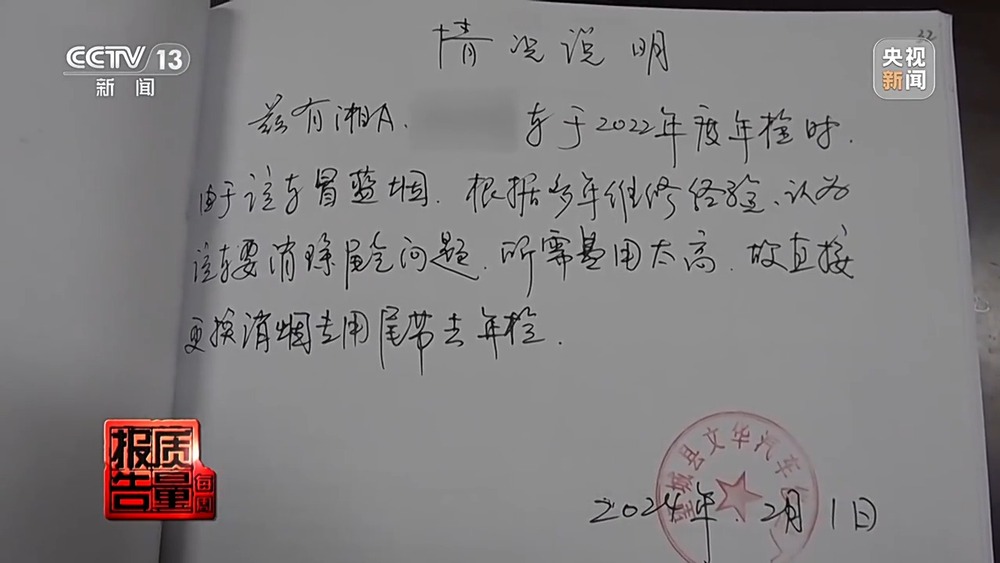 CCTV 13
新闻
央视
新闻
情况说明
兹有湘A.
车于2022年度年检时.
由于该车冒蓝烟.根据多年维修经验、认为
该车要消除尾气问题.所需费用太高.故直接
更换消烟专用尾带去年检.
县文华汽车
2024年.2月1日
质量
报告
每周